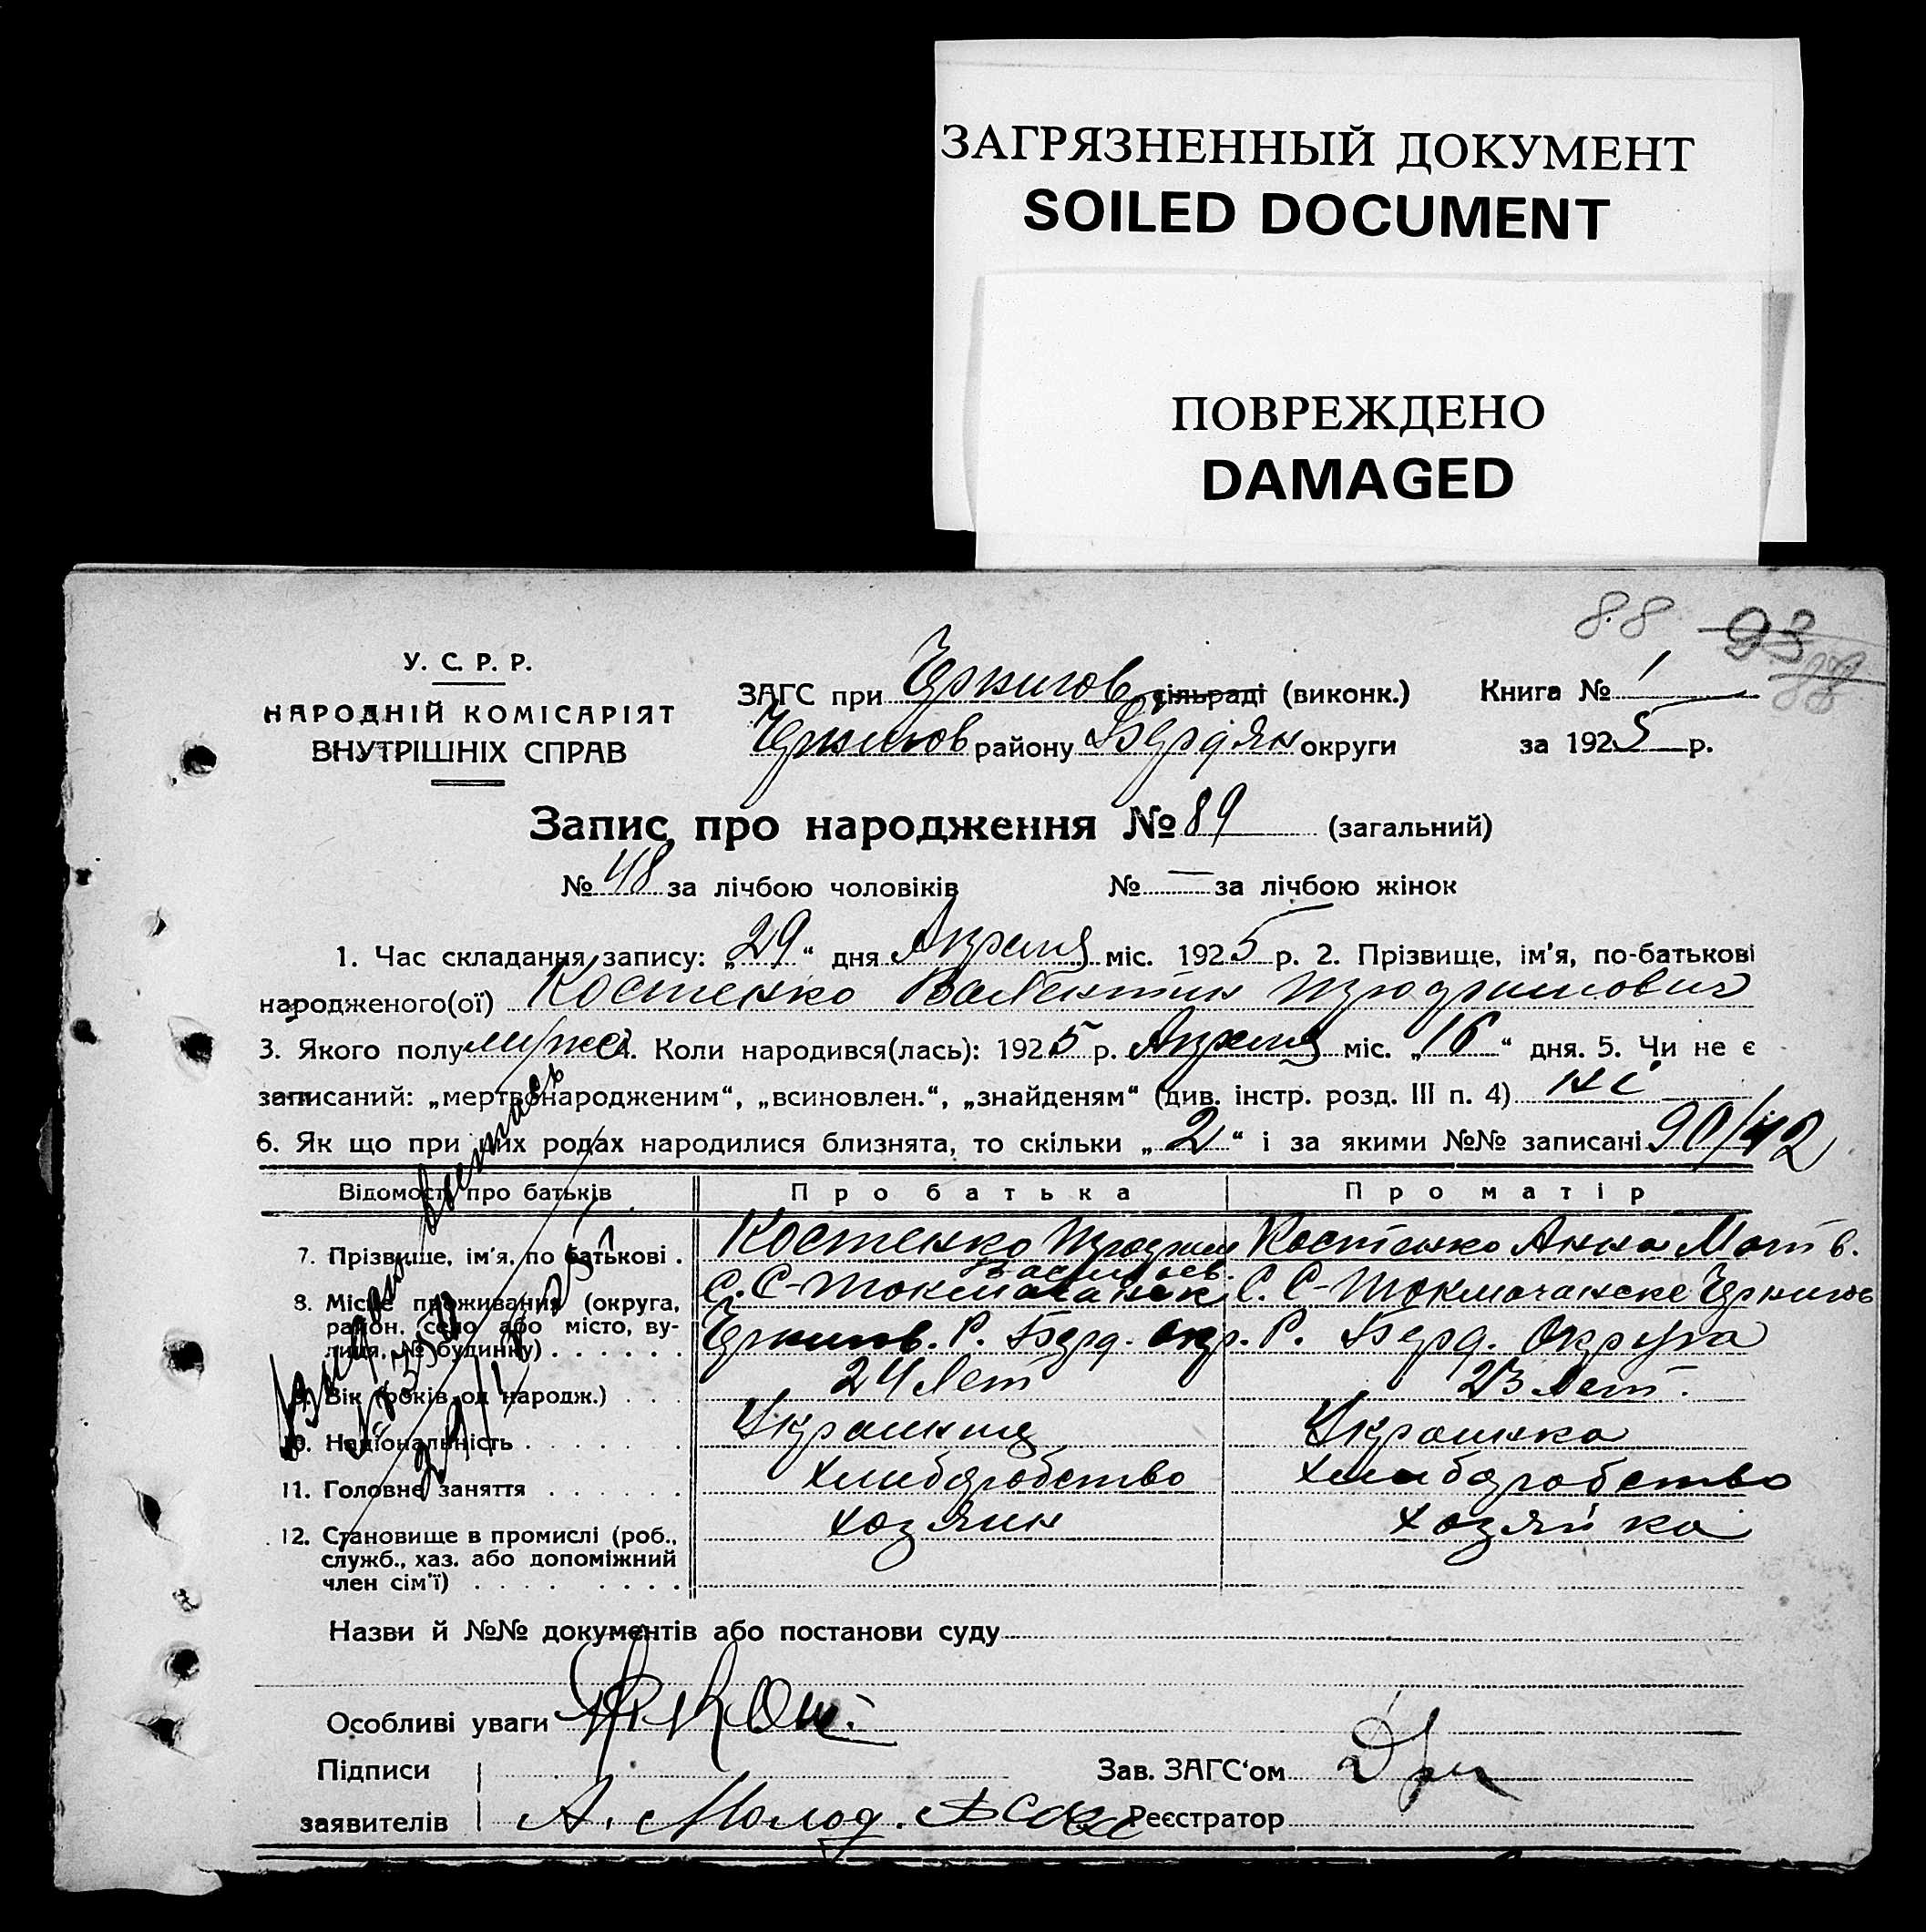 ЗАГРЯЗНЕННЫЙ ДОКУМЕНТ
SOILED DOCUMENT
ПОВРЕЖДЕНО
DAMAGED
88 93
88
У. С. Р. Р.
НАРОДНІЙ КОМІСАРІЯТ
ВНУТРІШНІХ СПРАВ
ЗАГС при Чернигов. сільраді (виконк.) Книга № 1
Чернигов району Бердян округи за 1925 р.
Запис про народження № 89 (загальний)
№ 48 за лічбою чоловіків № — за лічбою жінок
1. Час складання запису: „29“ дня Апреля міс. 1925 р. 2. Прізвище, ім'я, по-батькові
народженого(ої) Костенко Валентин
3. Якого полу муже 4. Коли народився(лась): 1925 р. Апреля міс. „16“ дня. 5. Чи не є
записаний: „мертвонародженим“, „всиновлен.“, „знайденям“ (див. інстр. розд. III п. 4) ні
6. Як що при цих родах народилися близнята, то скільки „2“ і за якими №№ записані 90/42
Відомості про батьків Про батька Про матір
7. Прізвище, ім'я, по батькові . Костенко Васильев. Костенко Анна Матв.
8. Місце проживання (округа, район, село або місто, вулиця, № будинку) . . . . . .
С. С-Токмачанск С. С-Токмачанске Чернигов
Чернигов. Р. Берд. окр. Р. Берд. Округа
9. Вік (років од народж.) . . . 24 лет 23 лет.
10. Національність . . . . . . . Украинец Украинка
11. Головне заняття . . . . . . хлиборобство хлиборобство
12. Становище в промислі (роб., хозяин хозяйка
служб., хаз. або допоміжний
член сім'ї) . . . . . . . .
Назви й №№ документів або постанови суду
Особливі уваги
Підписи Зав. ЗАГС'ом
заявителів А. Молод. Реєстратор
Видан